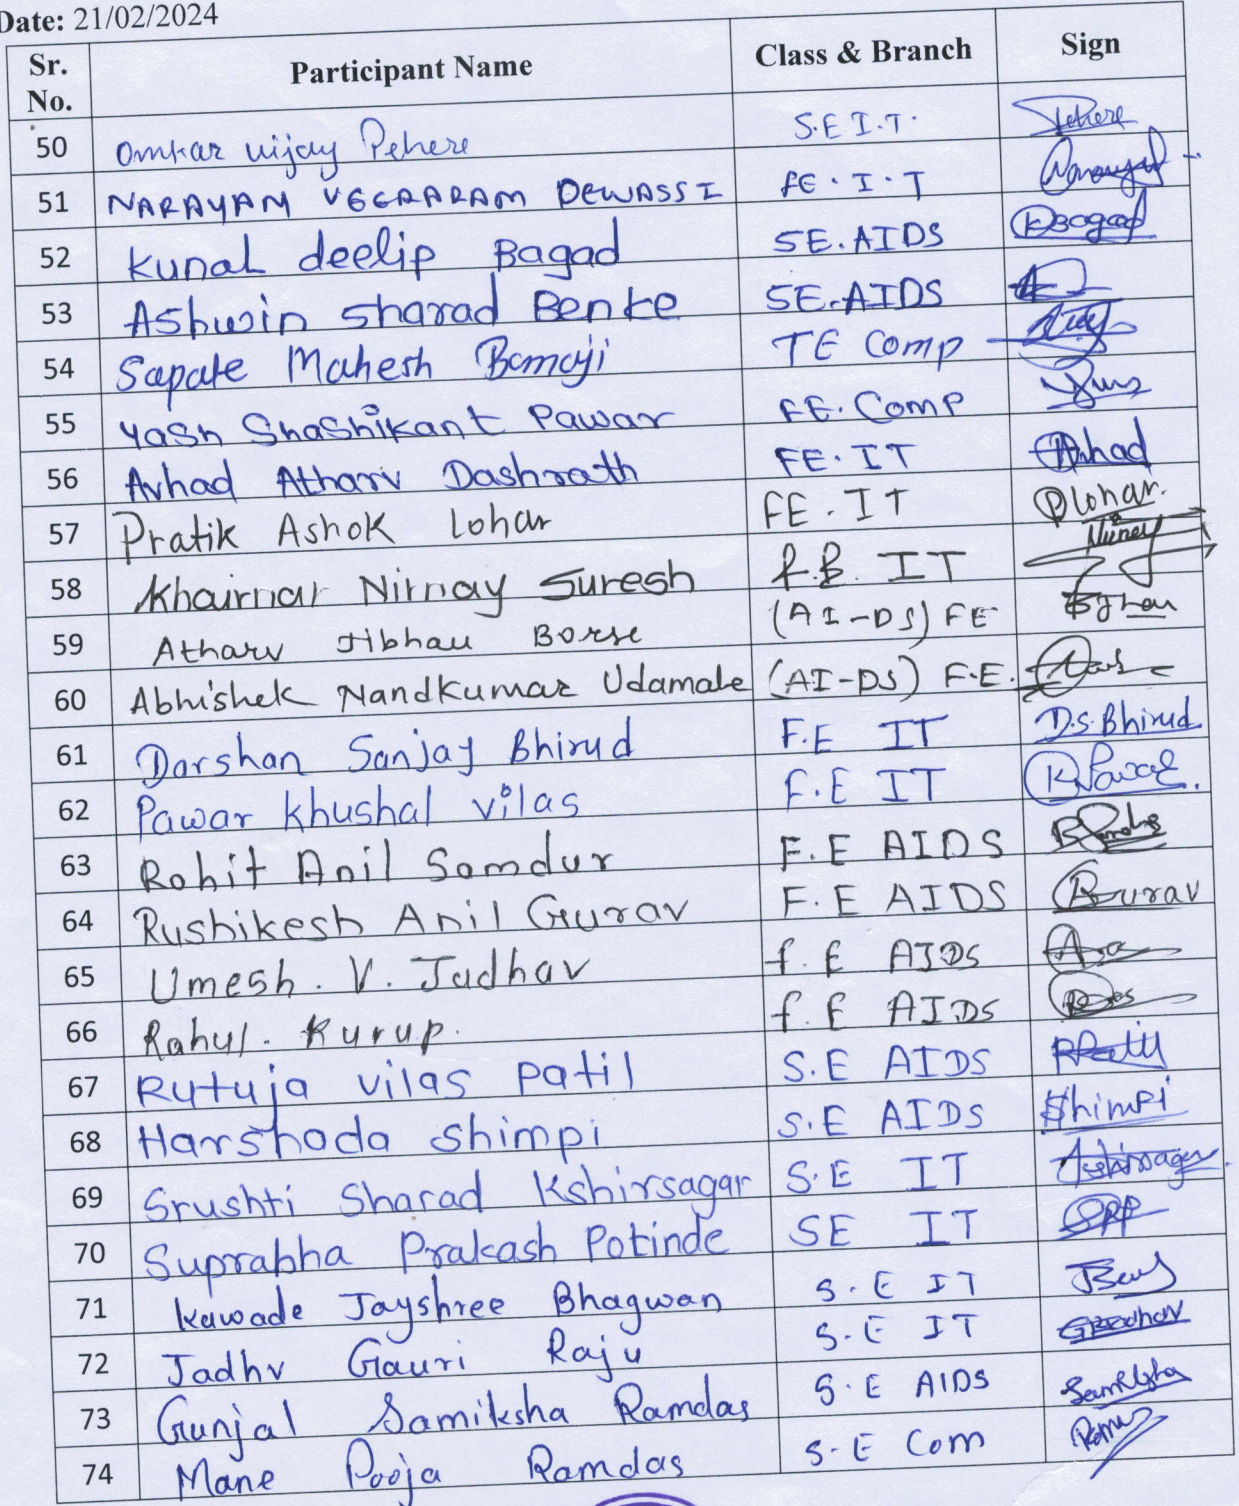 Date: 21/02/2024
Sr. No. Participant Name Class & Branch Sign
50 Omkar vijay Pehere S.E I.T. Pehere
51 NARAYAM VEERARAM DEWASSI FE.I.T
52 Kunal deelip Bagad SE.AIDS KBagad
53 Ashwin Sharad Benke SE.AIDS
54 Sapate Mahesh Bamaji TE Comp
55 Yash Shashikant Pawar FE.Comp
56 Avhad Atharv Dashrath FE.IT Avhad
57 Pratik Ashok Lohar FE.IT PLohar.
58 Khairnar Nirnay Suresh F.E. IT
59 Atharv Jibhau Borse (AI-DS) FE
60 Abhishek Nandkumar Udamale (AI-DS) F.E.
61 Darshan Sanjay Bhirud F.E IT D.S.Bhirud
62 Pawar Khushal Vilas F.E IT K.Pawar.
63 Rohit Anil Somdur F.E AIDS
64 Rushikesh Anil Gurav F.E AIDS Gurav
65 Umesh. V. Jadhav f.E AIDS
66 Rahul. Kurup. f.E AIDS
67 Rutuja vilas patil S.E AIDS RPatil
68 Harshada Shimpi S.E AIDS Shimpi
69 Srushti Sharad Kshirsagar S.E IT Kshirsagar
70 Suprabha Prakash Potinde SE IT SPP
71 Kawade Jayshree Bhagwan S.E IT
72 Jadhv Gauri Raju S.E IT
73 Gunjal Samiksha Ramdas S.E AIDS Samiksha
74 Mane Pooja Ramdas S.E Com